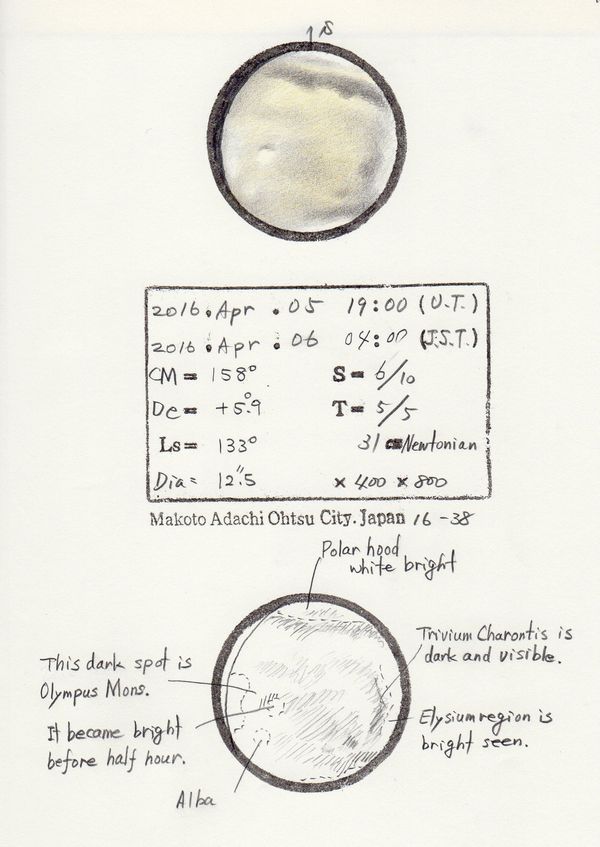 S
2016. Apr . 05 19:00 (U.T.)
2016. Apr . 06 04:00 (J.S.T.)
CM = 158° S = 6/10
De = +5.°9 T = 5/5
Ls = 133° 31 cm Newtonian
Dia = 12."5 × 400 × 800
Makoto Adachi Ohtsu City. Japan 16 -38
Polar hood
white bright
Trivium Charontis is
dark and visible.
This dark spot is
Olympus Mons.
Elysium region is
bright seen.
It became bright
before half hour.
Alba